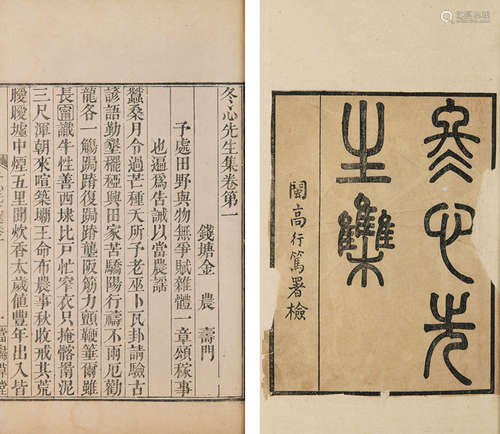 冬心先
生集
閩高行篤署檢
冬心先生集卷第一
錢塘金 農 壽門
予處田野與物無爭賦雜體一章頌稼事
也遍爲告誡以當農謠
蠶桑月令過芒種天所子老巫卜瓦卦請驗古
諺語勤 䆉稏興田家苦驕陽行禱不雨厄勸
龍各一觴跼蹐復跼蹐壟阪筋力顫鞭箠爾雖
長 識牛性善西埭比戶忙窄衣只掩骼 泥
三尺渾朝來喧築埧王命布農事秋收戒其荒
曖曖墟中煙五里聞炊香太歲值豐年出入皆